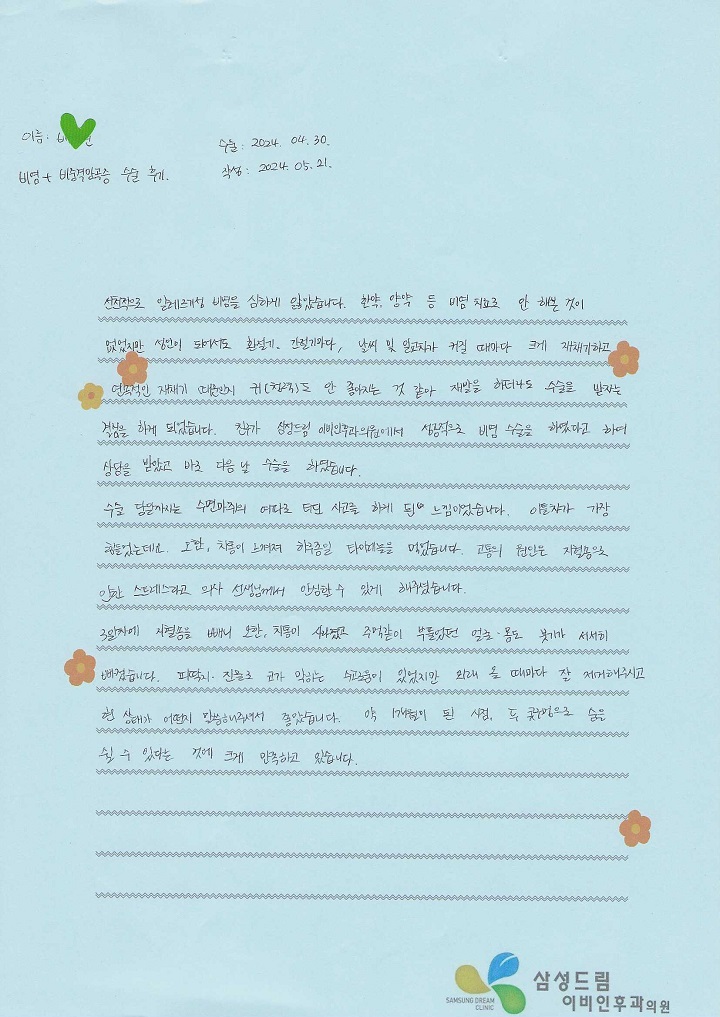 이름:
수술: 2024. 04. 30.
비염 + 비중격만곡증 수술 후기.
작성: 2024. 05. 21.
선천적으로 알레르기성 비염을 심하게 앓았습니다. 한약, 양약 등 비염 치료로 안 해본 것이
없었지만 성인이 되어서도 환절기, 간절기마다, 날씨 및 일교차가 커질 때마다 크게 재채기하고
연속적인 재채기 때문인지 귀 도 안 좋아지는 것 같아 재발을 하더라도 수술을 받자는
결심을 하게 되었습니다. 친구가 삼성드림 이비인후과의원에서 성공적으로 비염 수술을 하였다고 하여
상담을 받았고 바로 다음 날 수술을 하였습니다.
수술 당일까지는 수면마취의 여파로 더딘 사고를 하게 된 느낌이었습니다. 이튿차가 가장
힘들었는데요. 오한, 치통이 느껴져 하루종일 타이레놀을 먹었습니다. 고통의 원인은 지혈솜으로
인한 스트레스라고 의사 선생님께서 안심할 수 있게 해주셨습니다.
3일차에 지혈솜을 빼니 오한, 치통이 사라졌고 주먹같이 부풀었던 얼굴·몸도 붓기가 서서히
빠졌습니다. 피딱지·진물로 코가 막히는 수고로움이 있었지만 외래 올 때마다 잘 제거해주시고
현 상태가 어떤지 말씀해주셔서 좋았습니다. 약 1개월이 된 시점, 두 콧구멍으로 숨을
쉴 수 있다는 것에 크게 만족하고 있습니다.
SAMSUNG DREAM
CLINIC
삼성드림
이비인후과의원